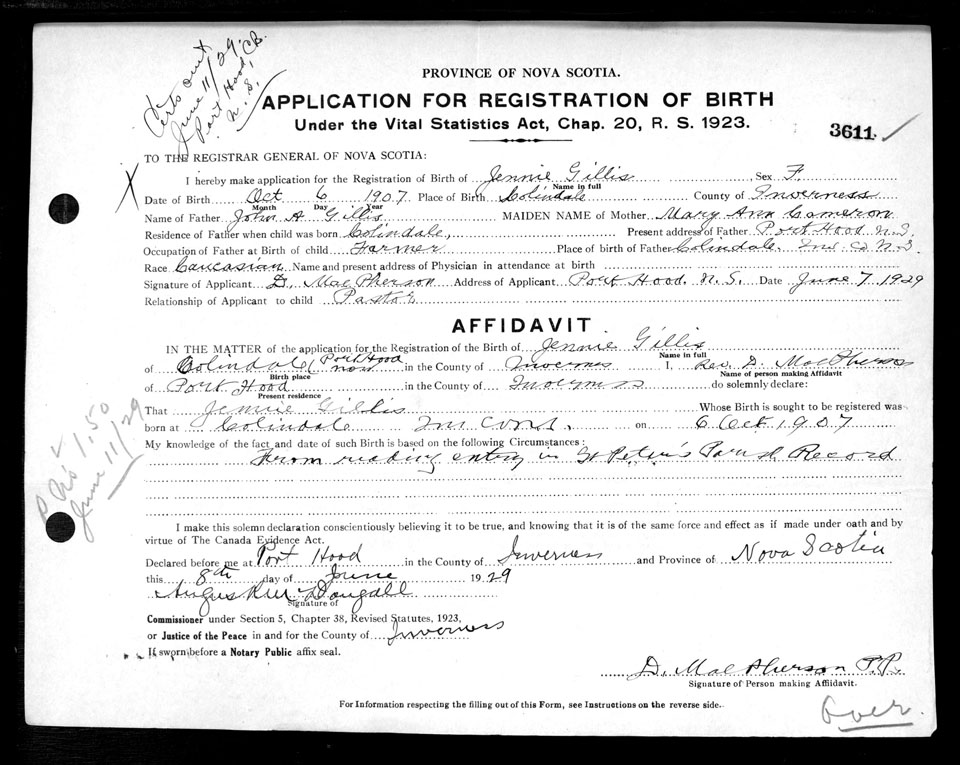 Certs out
June 11/29.
Port Hood, C.B.
N. S.
PROVINCE OF NOVA SCOTIA.
APPLICATION FOR REGISTRATION OF BIRTH
Under the Vital Statistics Act, Chap. 20, R. S. 1923.
3611
TO THE REGISTRAR GENERAL OF NOVA SCOTIA:
X
I hereby make application for the Registration of Birth of Jennie Gillis Sex F.
Name in full
Date of Birth Oct 6 1907 Place of Birth Colindale County of Inverness
Month Day Year
Name of Father John A. Gillis MAIDEN NAME of Mother Mary Ann Cameron
Residence of Father when child was born Colindale, Present address of Father Port Hood N.S.
Occupation of Father at Birth of child Farmer Place of birth of Father Colindale. Inv. Co N.S
Race Caucasian Name and present address of Physician in attendance at birth
Signature of Applicant D. MacPherson Address of Applicant Port Hood. N.S. Date June 7 1929
Relationship of Applicant to child Pastor
AFFIDAVIT.
IN THE MATTER of the application for the Registration of the Birth of Jennie Gillis
Name in full
of Colindale (Port Hood now in the County of Inverness I, Rev. D. MacPherson
Birth place Name of person making Affidavit
of Port Hood in the County of Inverness do solemnly declare:
Present residence
That Jennie Gillis Whose Birth is sought to be registered was
born at Colindale on 6 Oct 1907
My knowledge of the fact and date of such Birth is based on the following Circumstances:
From reading entry in St Peter's Parish Record
I make this solemn declaration conscientiously believing it to be true, and knowing that it is of the same force and effect as if made under oath and by
virtue of The Canada Evidence Act.
Declared before me at Port Hood in the County of Inverness and Province of Nova Scotia
this 8th day of June 1929
Angus McDougall
Signature of
Commissioner under Section 5, Chapter 38, Revised Statutes, 1923,
or Justice of the Peace in and for the County of Inverness
If sworn before a Notary Public affix seal.
D. MacPherson P.P.
Signature of Person making Affiidavit.
For Information respecting the filling out of this Form, see Instructions on the reverse side.
Over.
1.50
June 11/29